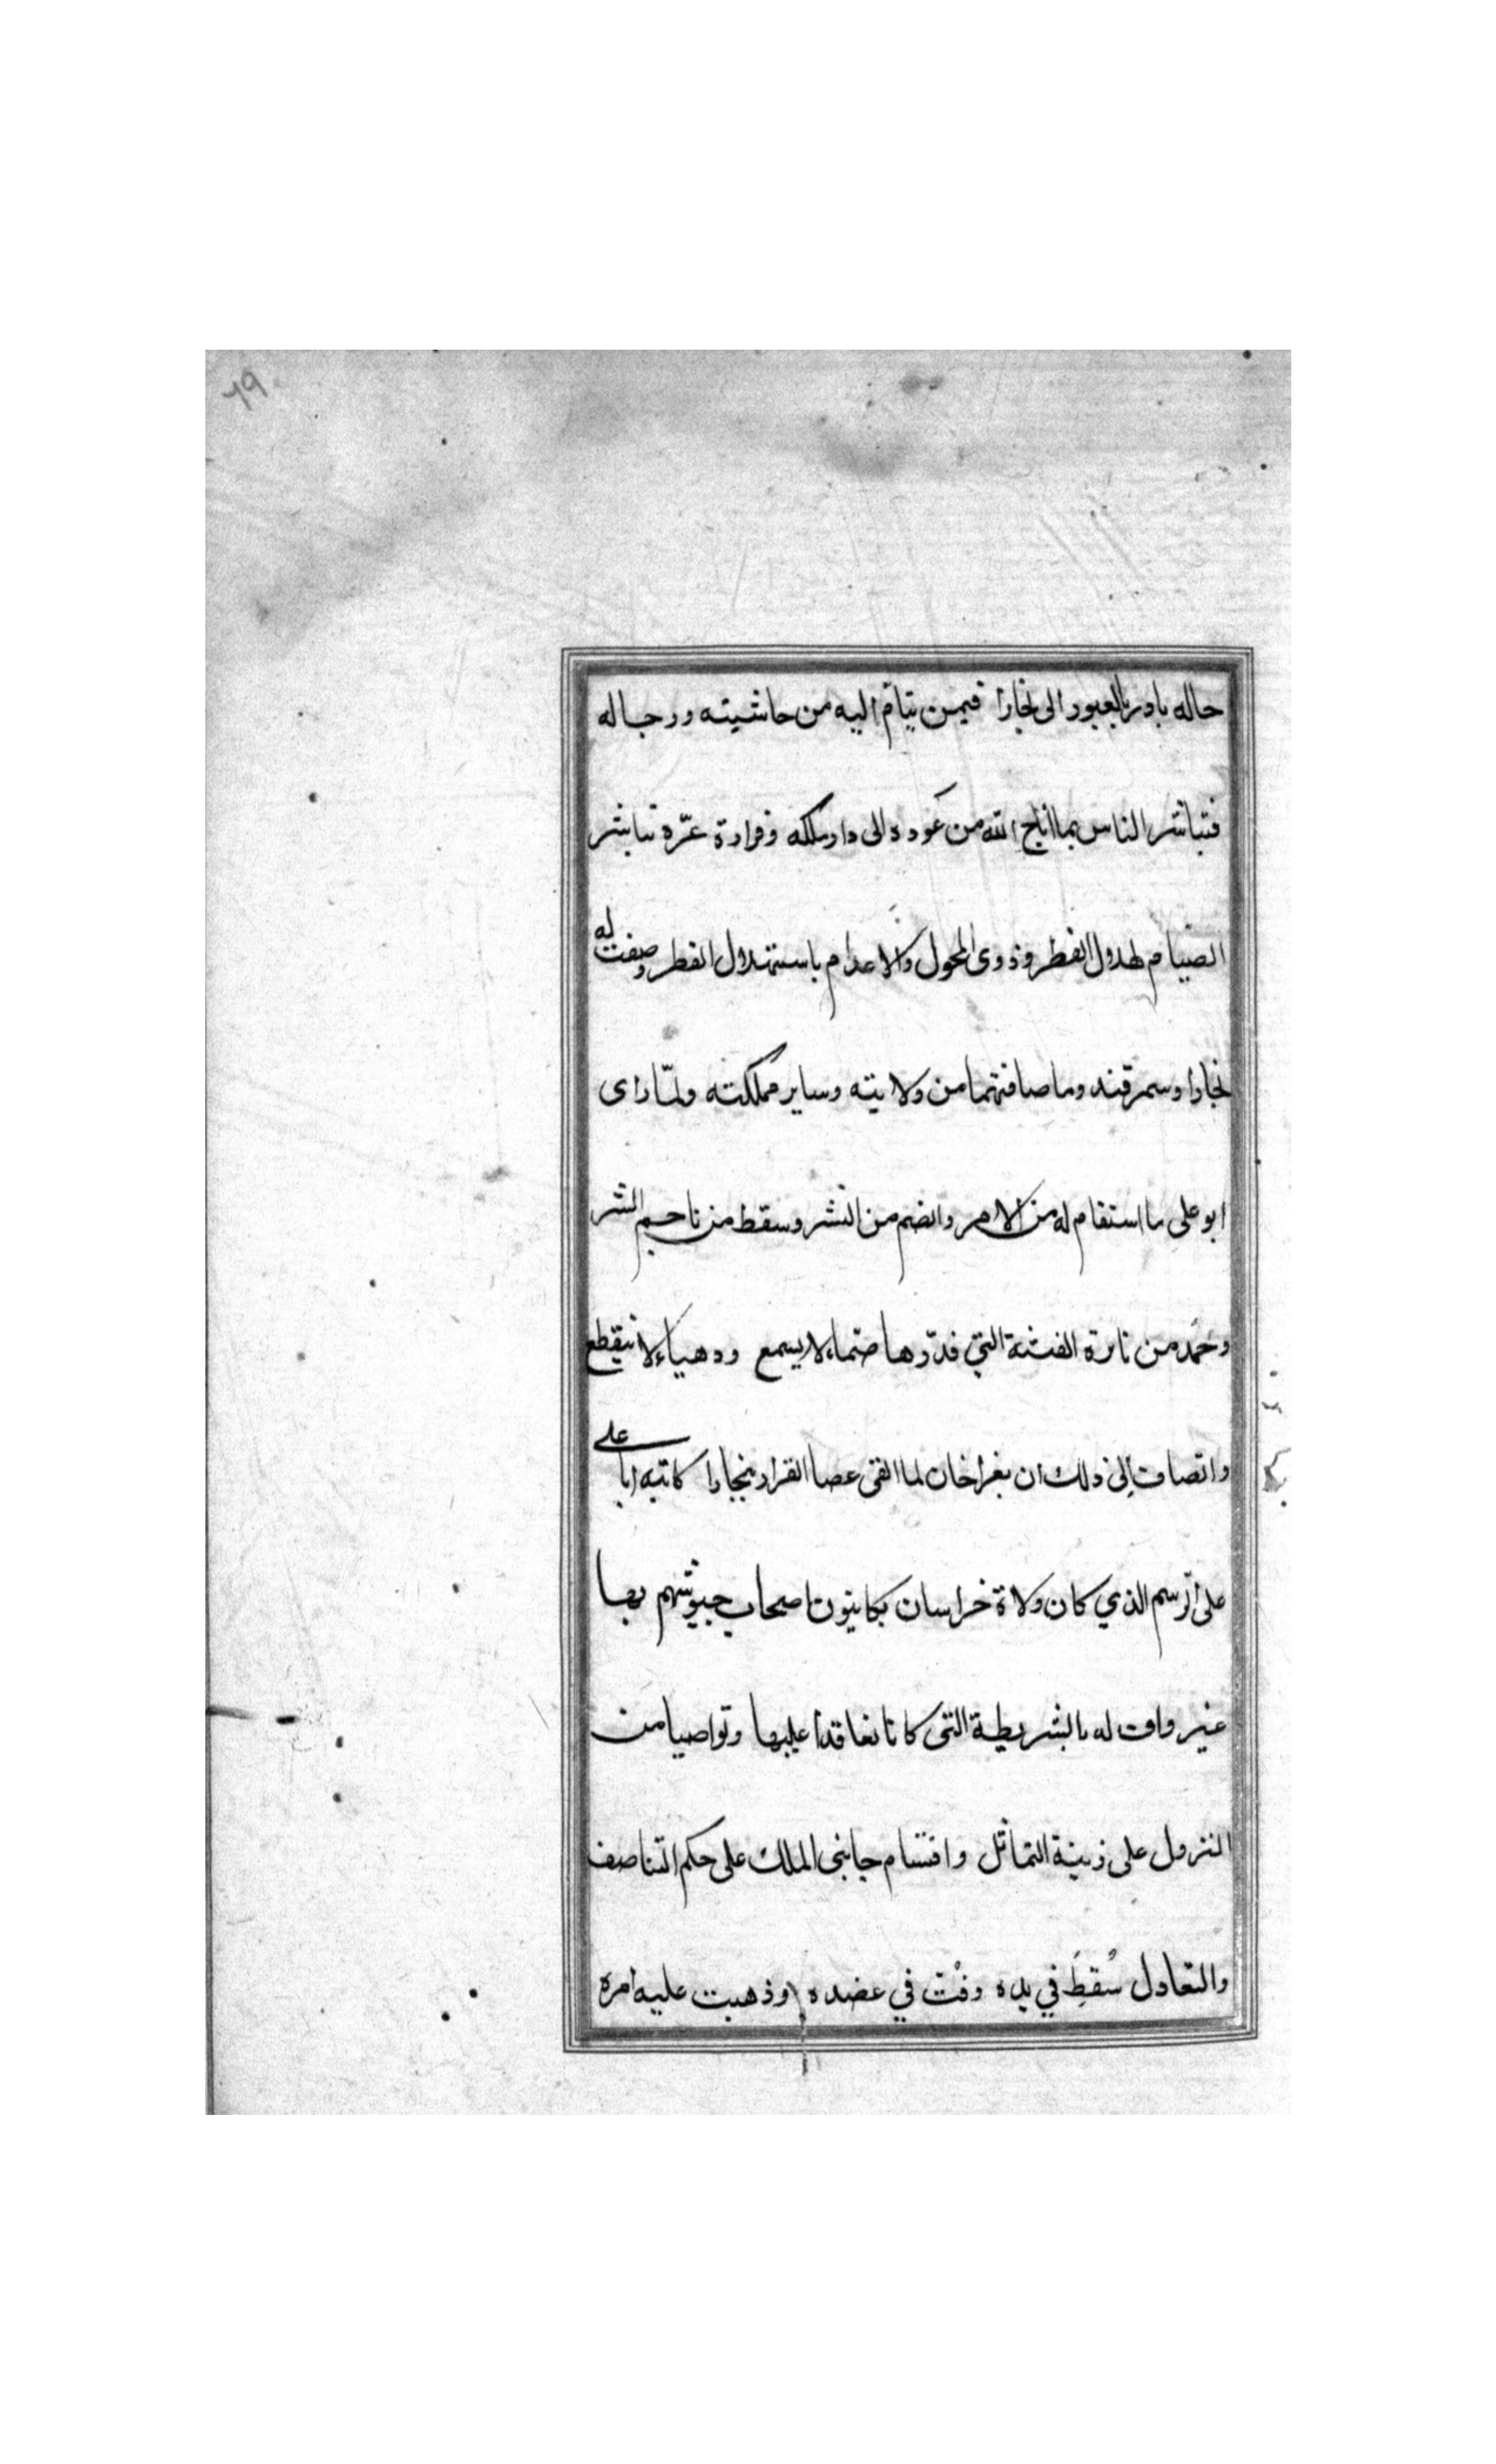 ٦٩
حاله بادر بالعبور الى بخارا فيمن يتام اليه من حاشيته ورجاله
فتباشر الناس بما اتاح الله من عوده الى دار ملكه وقرارة عزّه تباشر
الصيام لهلال الفطر وذوى المحول والاعدام باستهلال القطر وصفت له
بخارا وسمرقند وما صافتهما من ولايته وساير مملكته ولمّا راى
ابو على ما استقام له من الامر وانضم من النشر وسقط من ناجم الشر
وخمد من نايرة الفتنة التي قدّرها صماء لا يسمع ودهياء لا ينقطع
وانضاف إلى ذلك ان بغراخان لما القى عصا القرار ببخارا كاتبه ابا على
على الرسم الذي كان ولاة خراسان يكاتبون اصحاب جيوشهم بها
غير واف له بالشريطة التى كانا تعاقدا عليها وتواصيا من
النزول على زينة التماثل واقتسام جانبى الملك على حكم التناصف
والتعادل سُقطَ في يده وفُت في عضده وذهبت عليه امره